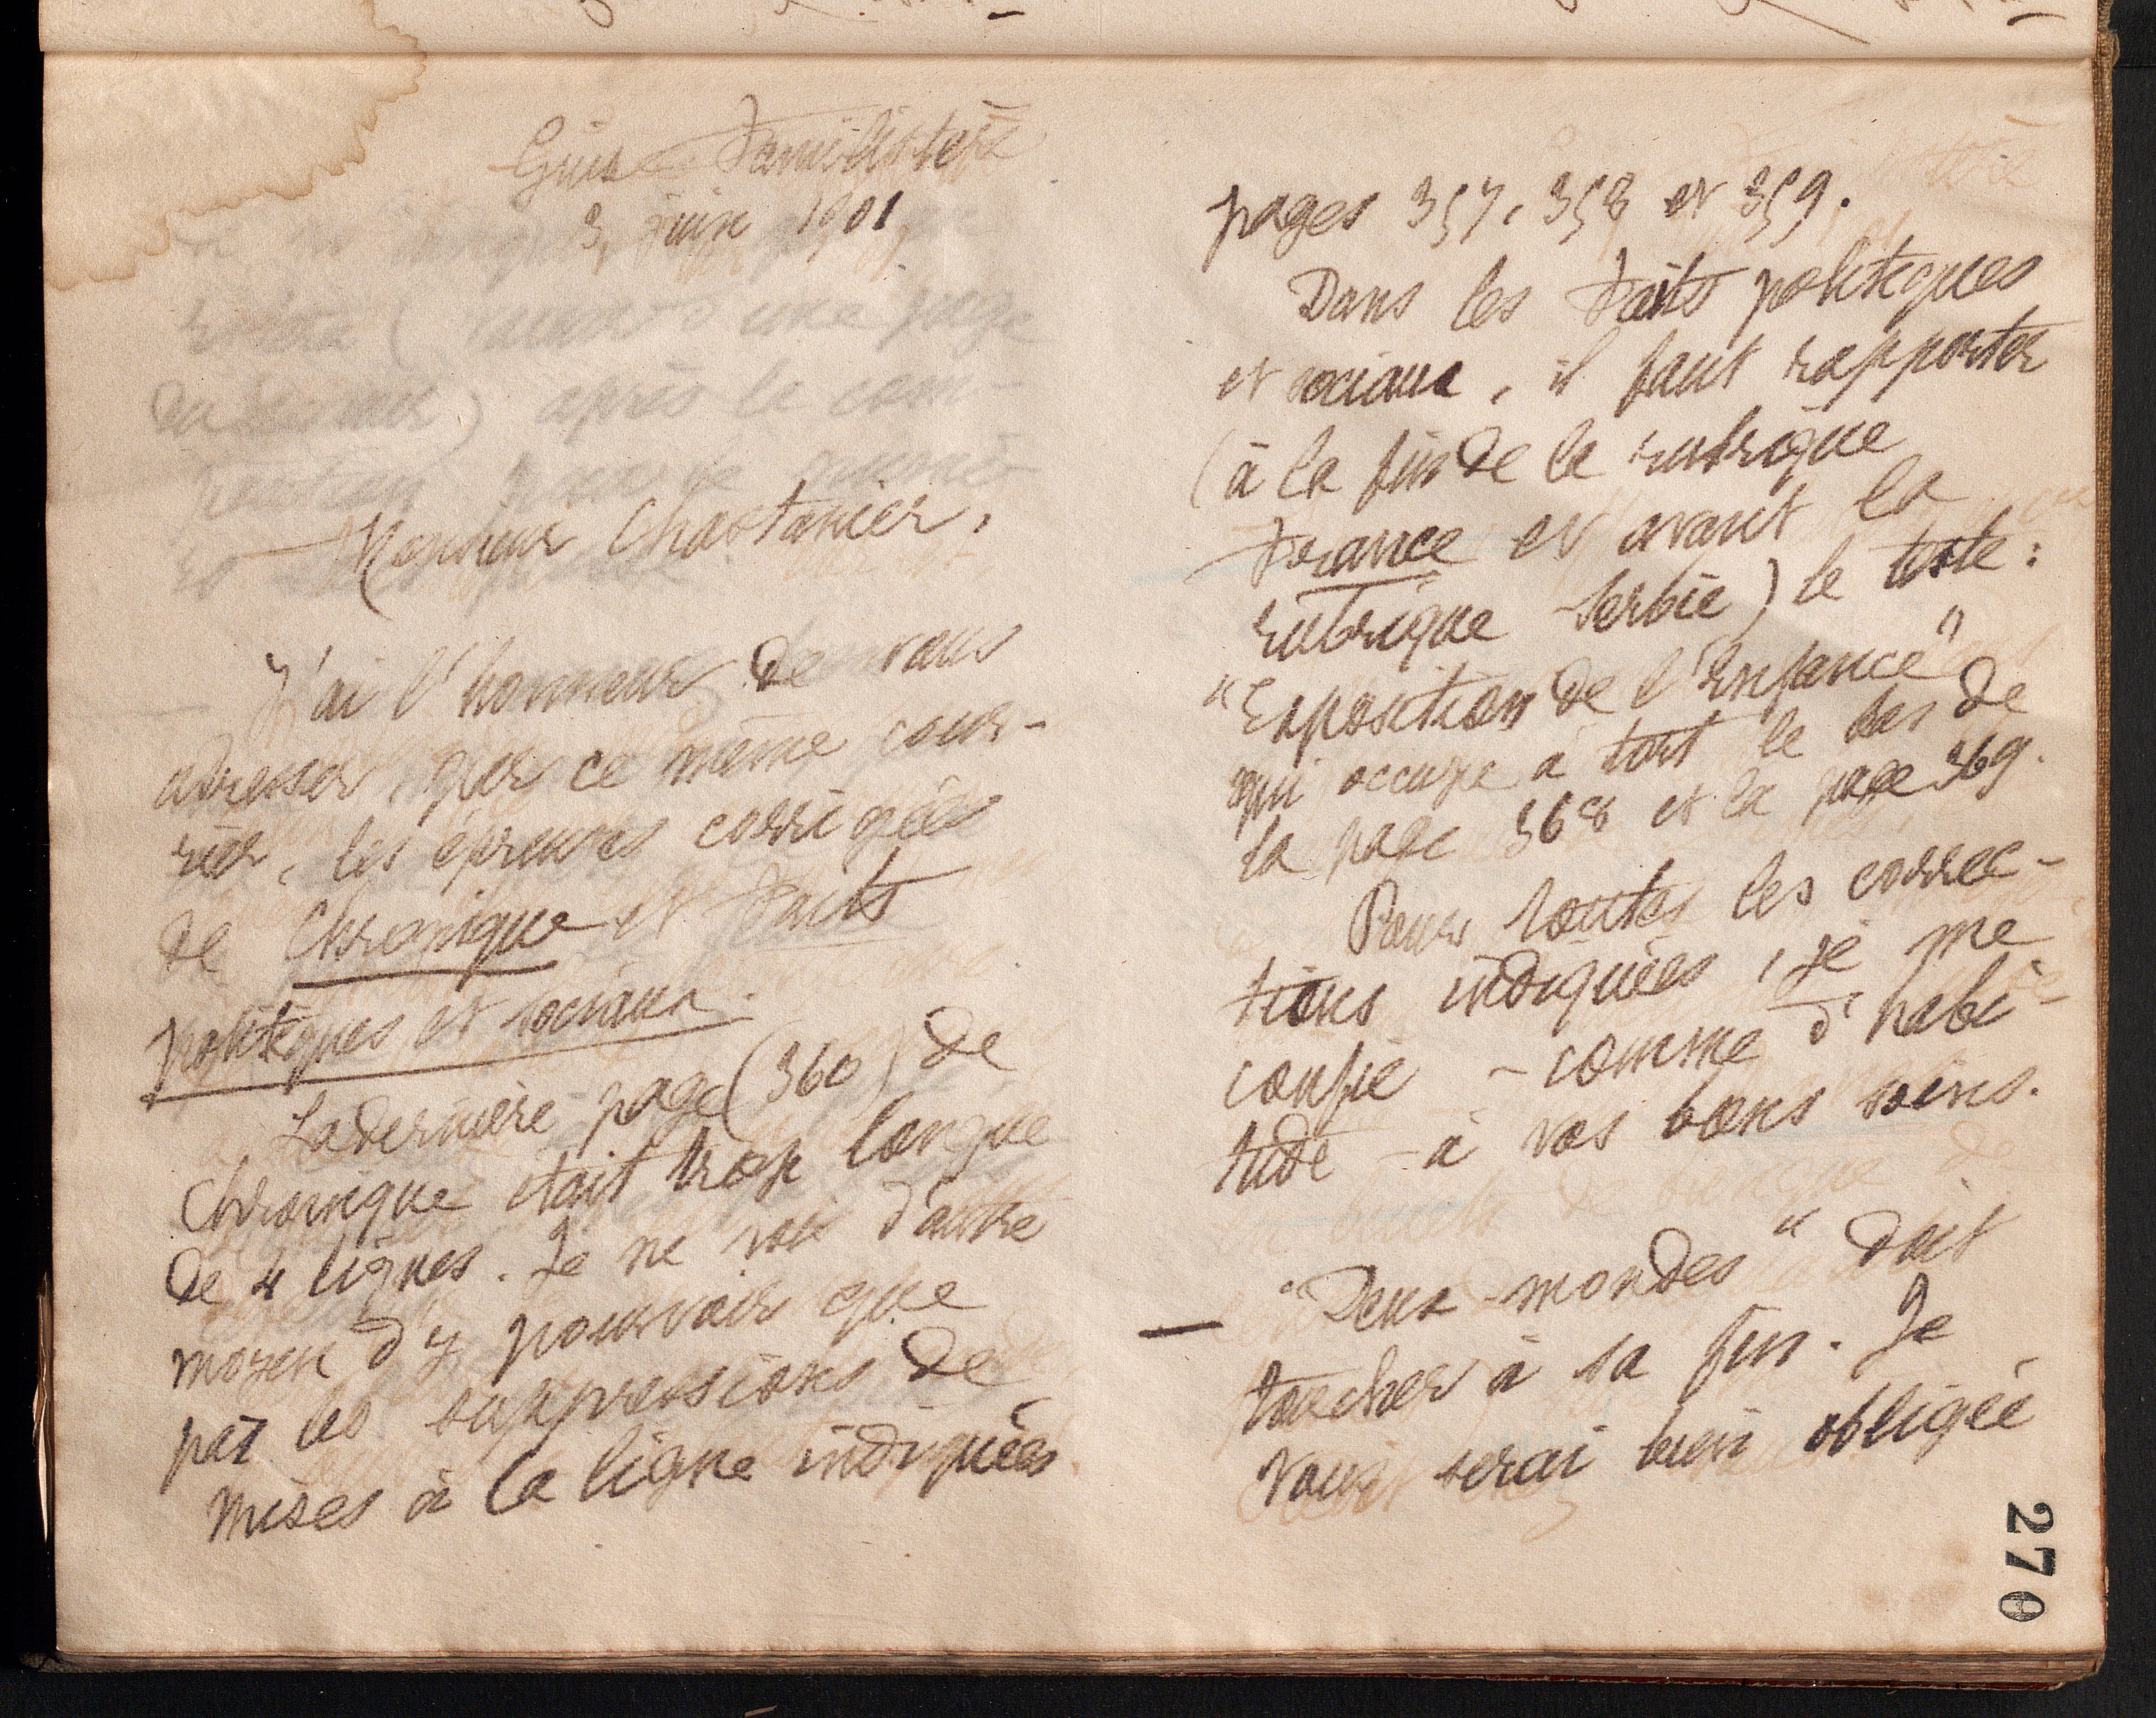 Guise Familistère
3 juin 1901
Monsieur Chastanier,
J'ai l'honneur de vous
adresser, par ce même cour-
rier, les épreuves corrigées
de Chronique et Faits
politiques et sociaux.
La dernière page (360) de
Chronique était trop longue
de 4 lignes. Je ne vois d'autre
moyen d'y pourvoir que
par les suppressions de
mises à la ligne indiquées
pages 357, 358 et 359.
Dans les Faits politiques
et sociaux, il faut rapporter
(à la fin de la rubrique
France et avant la
rubrique Serbie) le texte :
"Exposition de l'Enfance"
qui occupe à tort le bas de
la page 368 et la page 369.
Pour toutes les correc-
tions indiquées, je me
confie - comme d'habi-
tude - à vos bons soins.
— "Deux mondes" doit
toucher à sa fin. Je
vous serai bien obligée
270